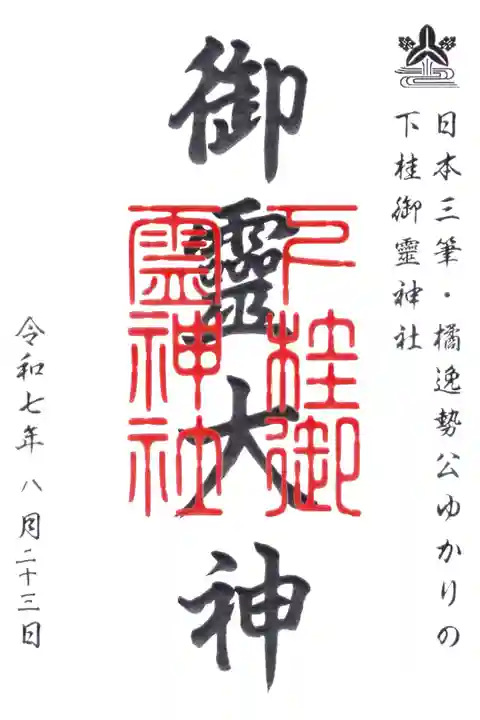 日本三筆・橘逸勢公ゆかりの
下桂御霊神社
御靈大神
下桂御
霊神社
令和七年 八月二十三日